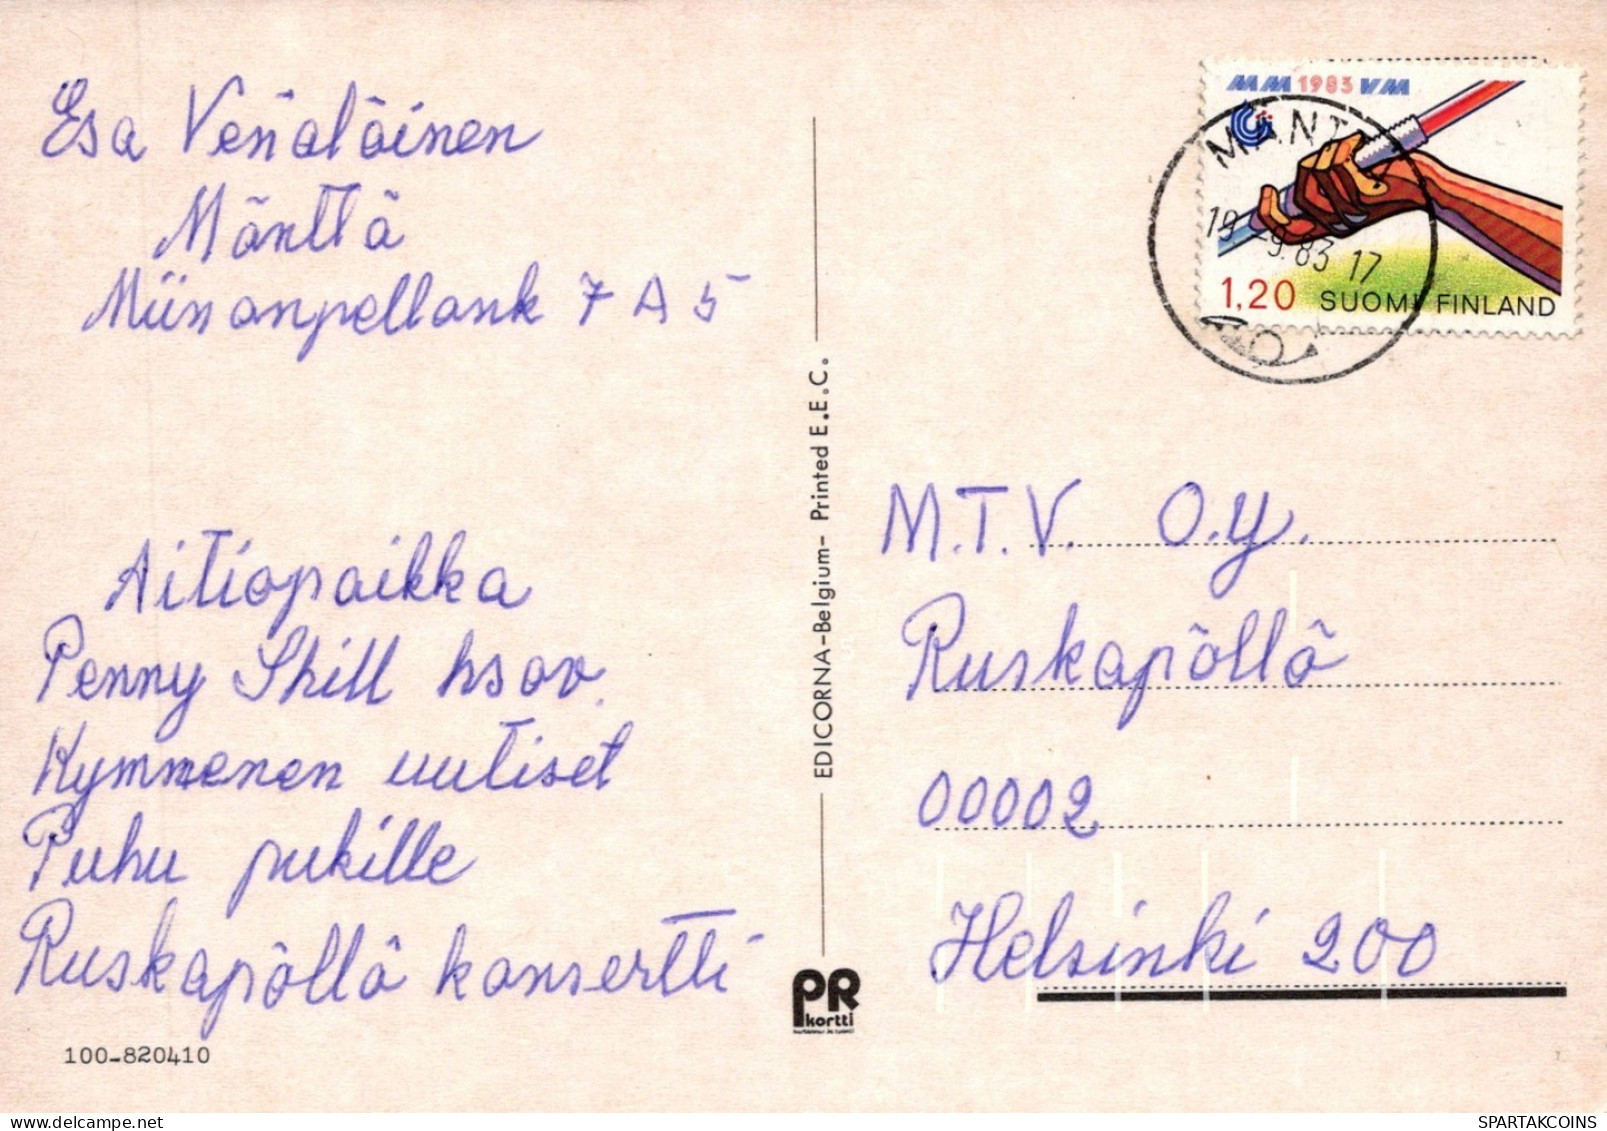 Esa Venäläinen
Mänttä
Miinanpellonk 7 A 5
Aitiopaikka
Penny Shill hsov.
Kymmenen uutiset
Puhu pukille
Ruskapöllö konsertti
100-820410
EDICORNA-Belgium- Printed E.E.C.
PR
kortti
MM 1983 VM
1,20 SUOMI FINLAND
MÄNT
19 -9.83 17
M.T.V. O.y.
Ruskapöllö
00002
Helsinki 200
SPARTAKCOINS